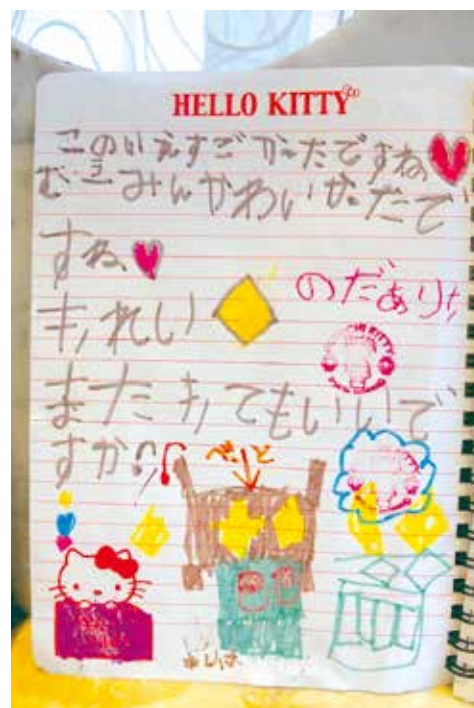 HELLO KITTY
このいえすごかったですね
むこみんかわいかったで
すね、
のだあり
きれい
またきてもいいで
すか
べっと